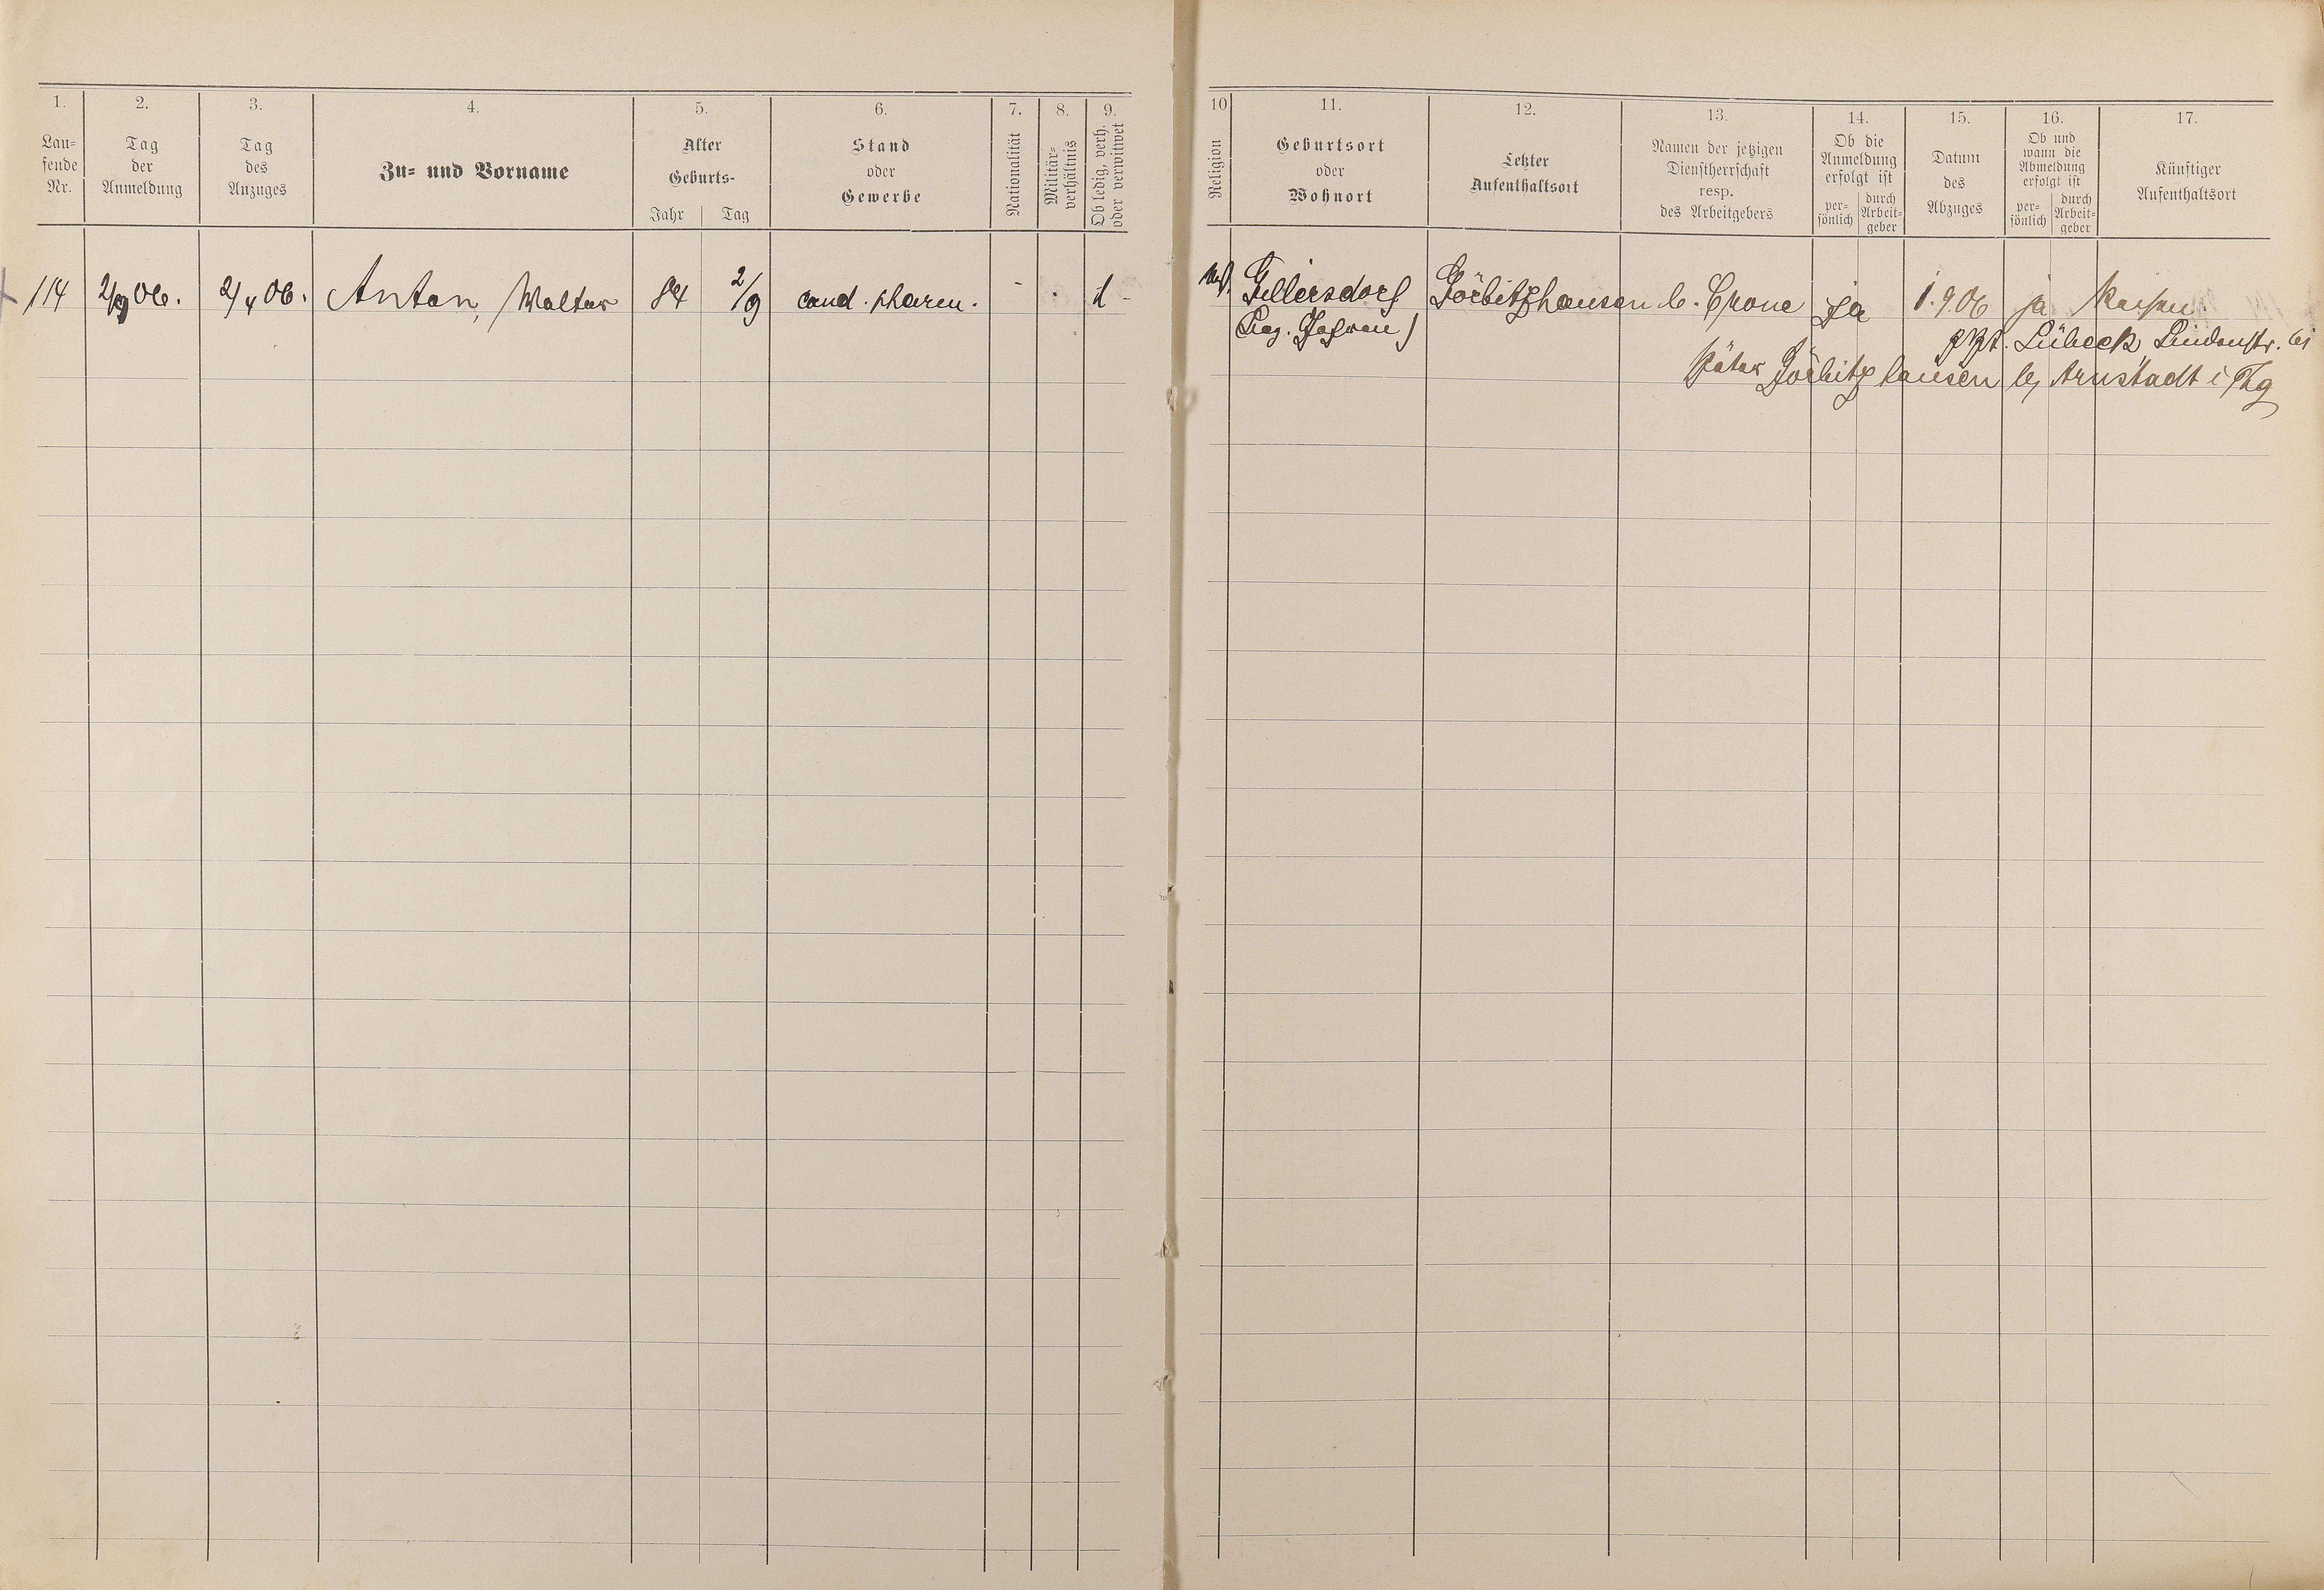 1. 2. 3. 4. 5. 6. 7. 8. 9. 10 11. 12. 13. 14. 15. 16. 17.
Lau-
fende
Nr.
Tag
der
Anmeldung
Tag
des
Anzuges
Zu- und Vorname
Alter
Geburts-
Jahr Tag
Stand
oder
Gewerbe
Nationalität
Militär-
verhältnis
Ob ledig, verh.
oder verwitwet
Religion
Geburtsort
oder
Wohnort
Letzter
Aufenthaltsort
Namen der jetzigen
Dienstherrschaft
resp.
des Arbeitgebers
Ob die
Anmeldung
erfolgt ist
per-
sönlich
durch
Arbeit-
geber
Datum
des
Abzuges
Ob und
wann die
Abmeldung
erfolgt ist
per-
sönlich
durch
Arbeit-
geber
Künftiger
Aufenthaltsort
114 2/9 06. 2/4 06. Anton, Walter 84 2/9 cand. pharm. - . l - Gillersdorf Görbitzhausen b. Epone ja 1.9.06 ja
Lübeck Lindenstr. 61
später Görbitzhausen by Arnstadt i Thg